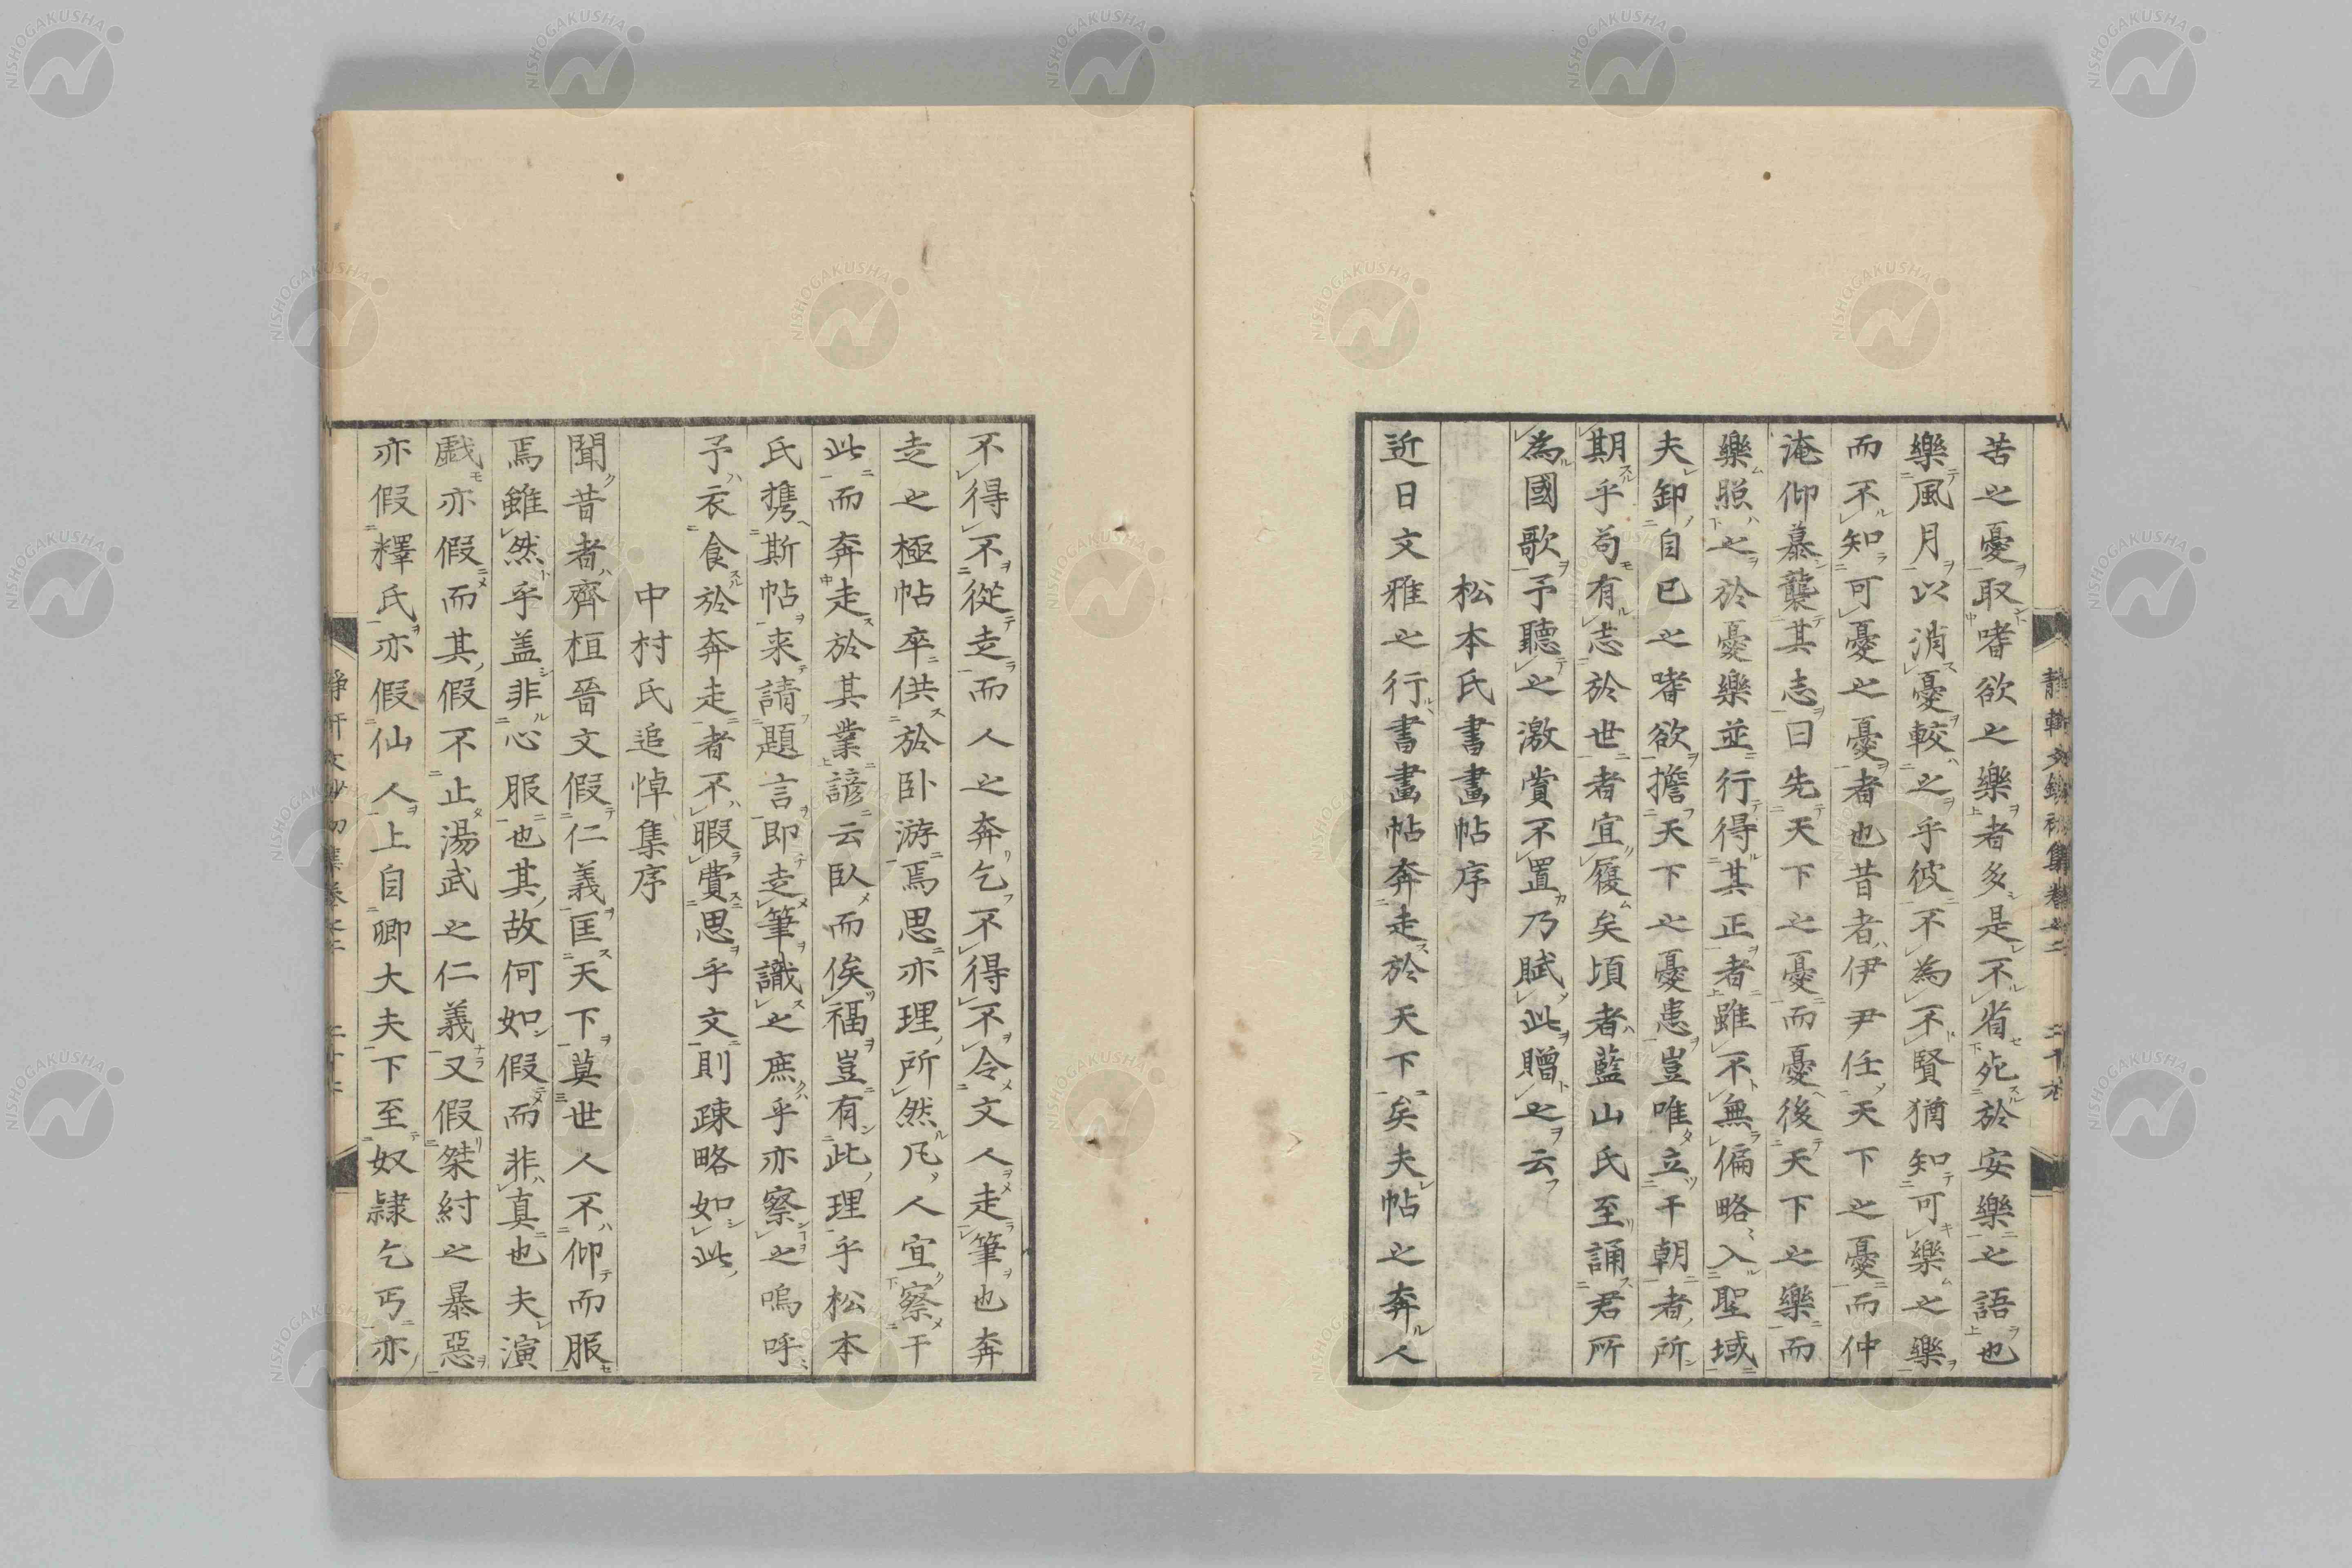 苦之憂取嗜欲之樂者多是不省死於安樂之語也
樂風月以消憂較之乎彼不為不賢猶知可樂之樂
而不知可憂之憂者也昔者伊尹任天下之憂而仲
淹仰慕襲其志曰先天下之憂而憂後天下之樂而
樂照之於憂樂並行得其正者雖不無偏略入聖域
夫卸自己之嗜欲擔天下之憂患豈唯立干朝者所
期乎苟有志於世者宜履矣頃者藍山氏至誦君所
為國歌予聽之激賞不置乃賦此贈之云
松本氏書畫帖序
近日文雅之行書畫帖奔走於天下矣夫帖之奔人
不得不從走而人之奔乞不得不令文人走筆也奔
走之極帖卒供於卧游焉思亦理所然凡人宜察干
此而奔走於其業諺云臥而俟福豈有此理乎松本
氏携斯帖来請題言即走筆識之庶乎亦察之嗚呼
予衣食於奔走者不暇費思乎文則疎略如此
中村氏追悼集序
聞昔者齊桓晉文假仁義匡天下莫世人不仰而服
焉雖然乎盖非心服也其故何如假而非真也夫演
戯亦假而其假不止湯武之仁義又假桀紂之暴惡
亦假釋氏亦假仙人上自卿大夫下至奴隷乞丐亦